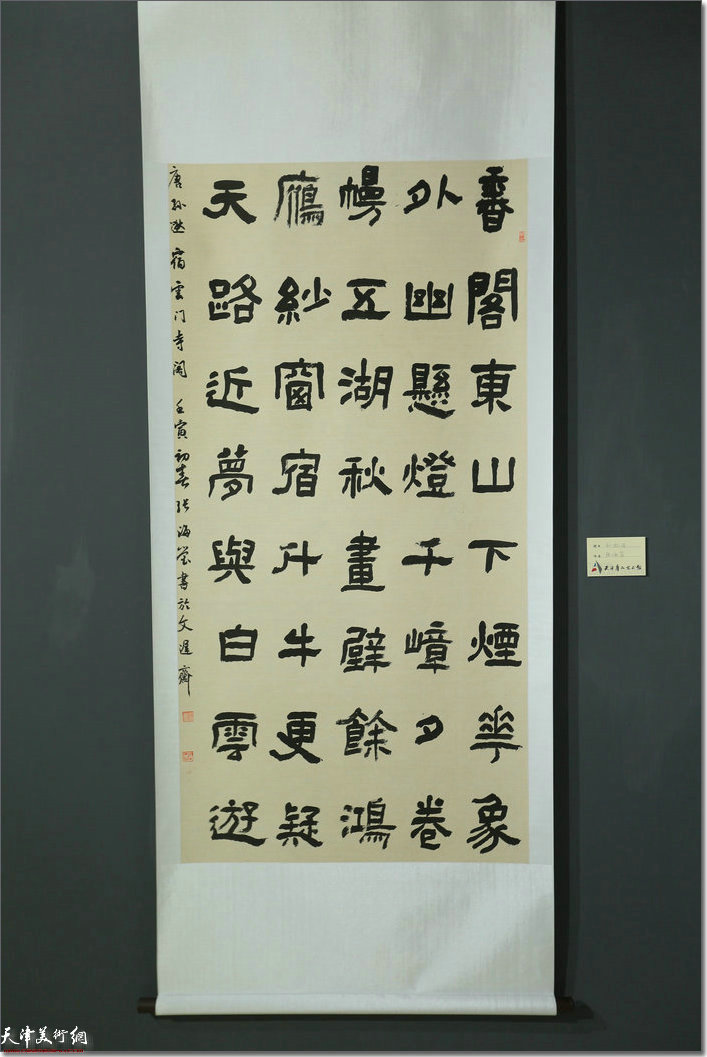 香閣東山下煙華象
外幽懸燈千嶂夕卷
幔五湖秋畫壁餘鴻
鴈紗窗宿斗牛更疑
天路近夢與白雲遊
唐孙逖 宿雲门寺阁 壬寅初春张海書於文齋
天津美術網